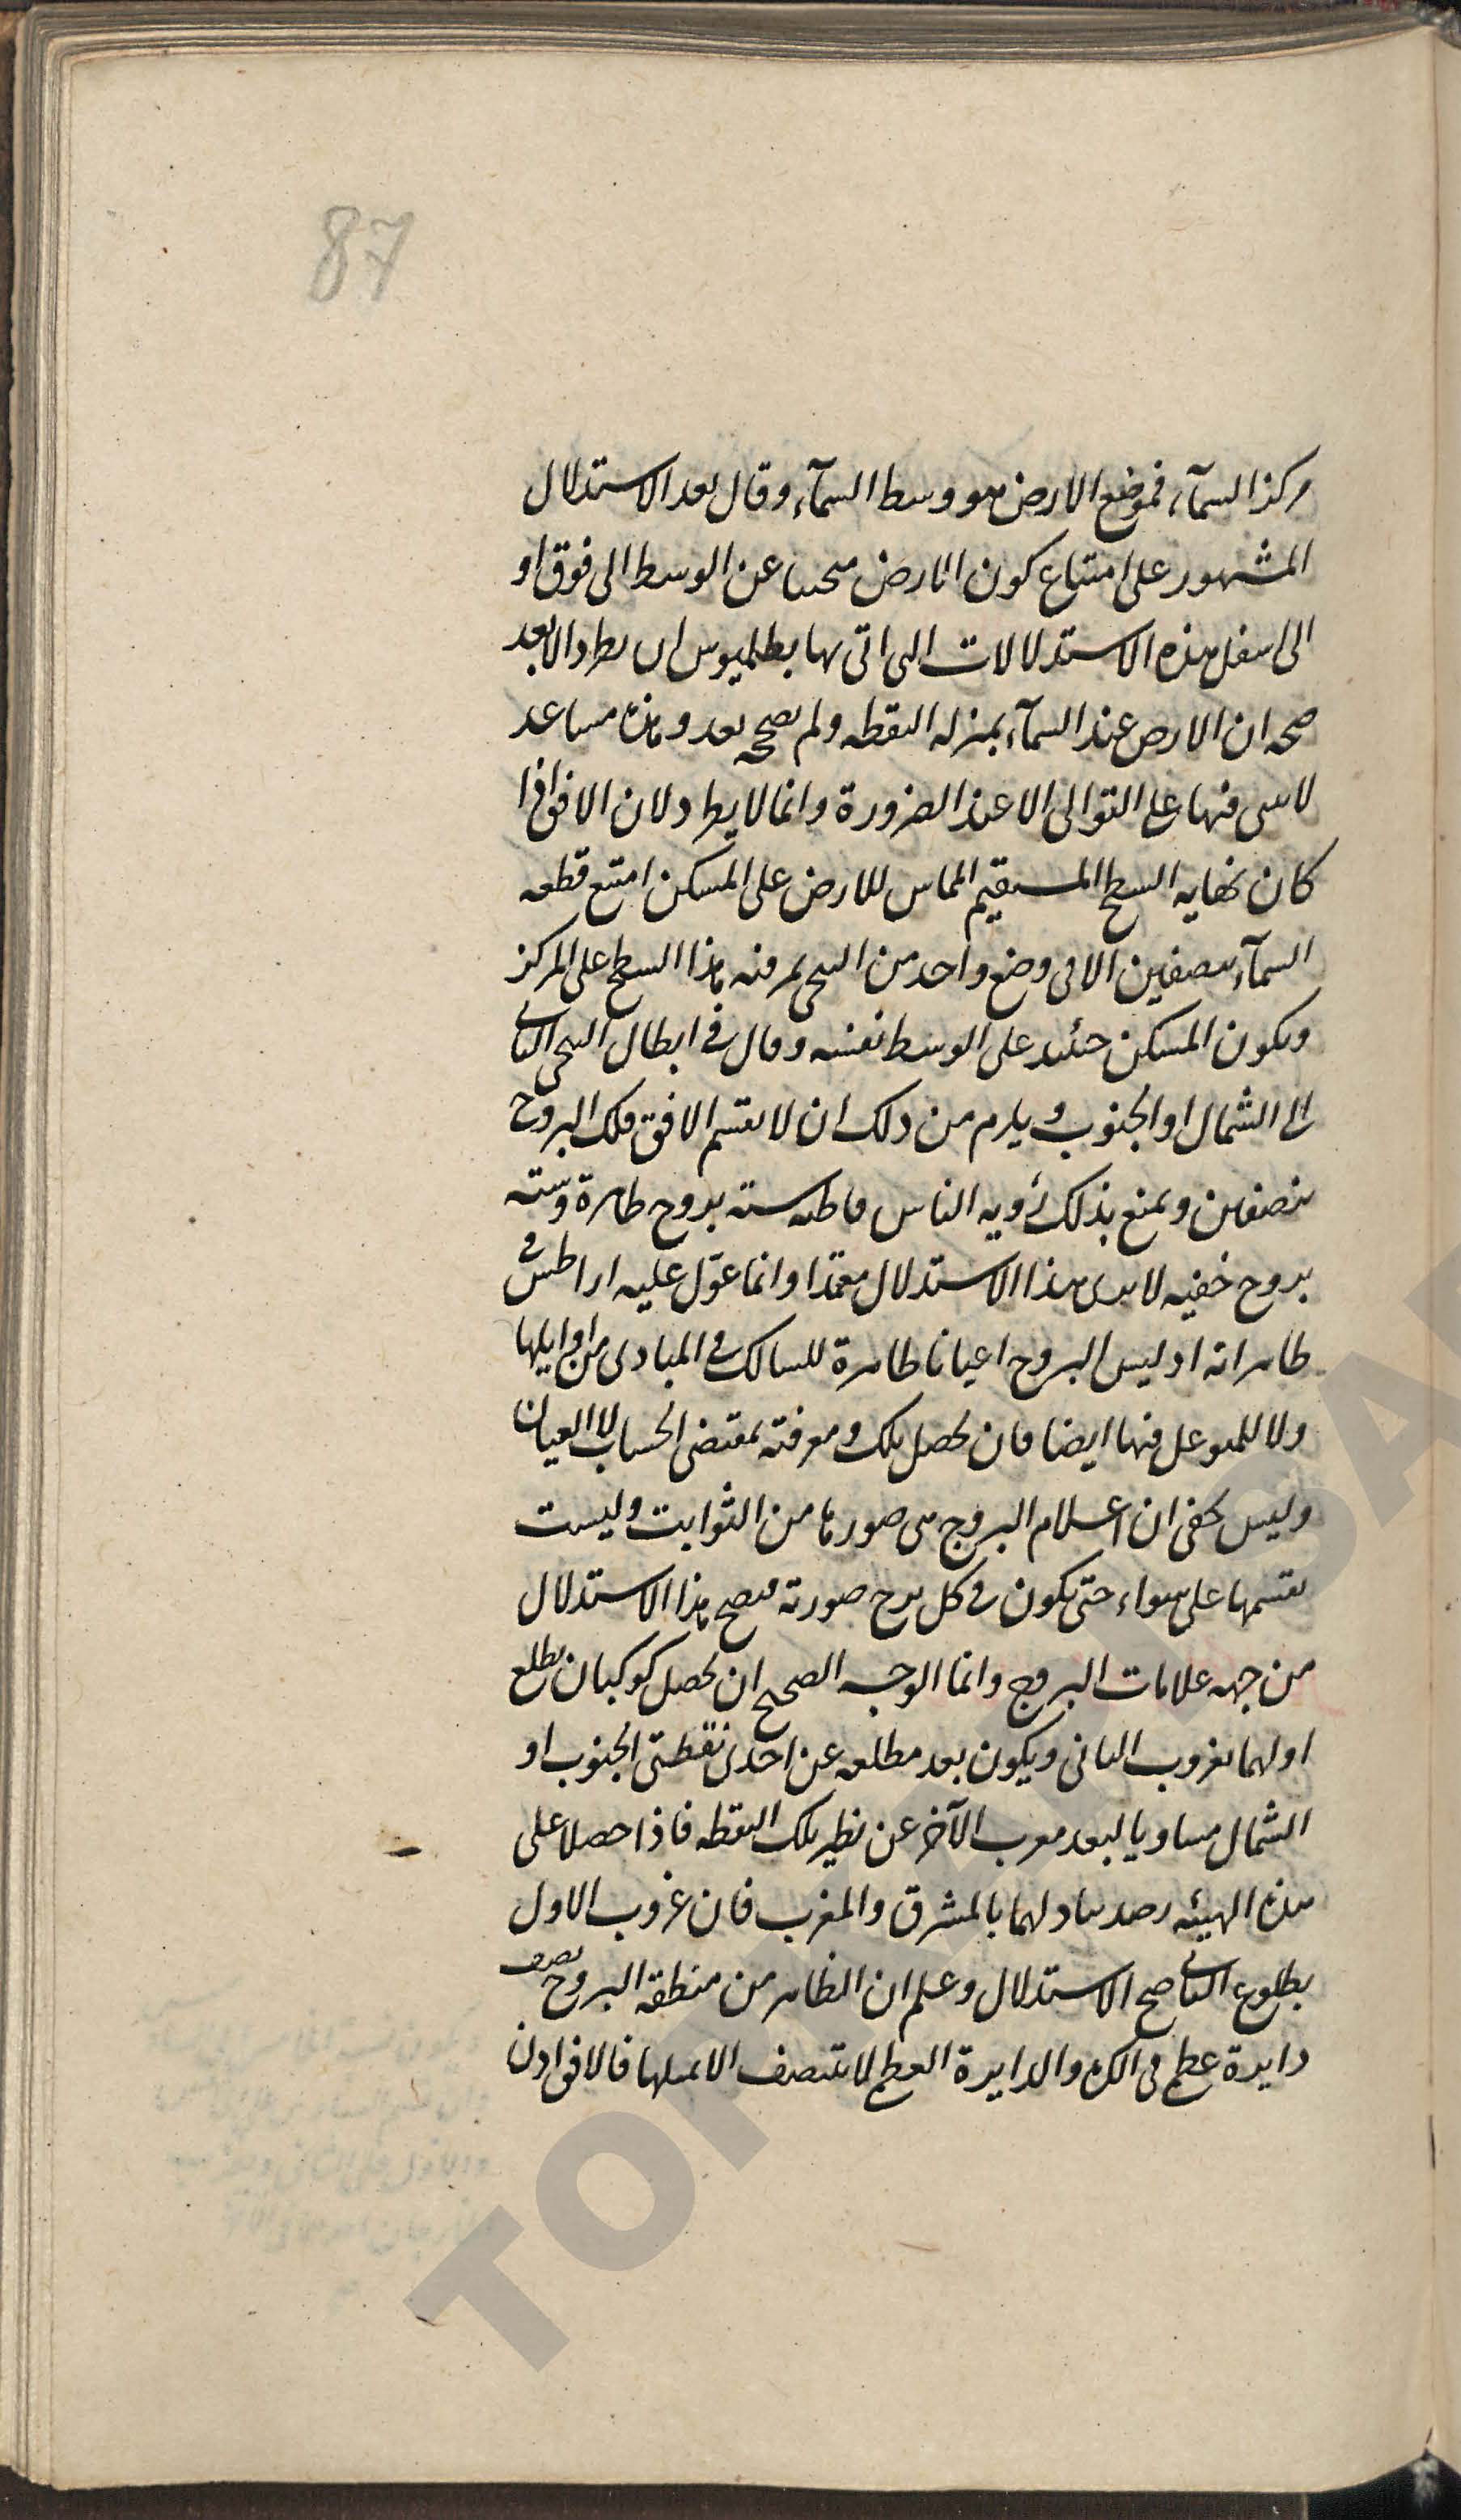 87
مركز السمآء فموضع الارض هو وسط السمآء وقال بعد الاستدلال
المشهور على امتناع كون الارض متنحيا عن الوسط الى فوق او
الى اسفل هذه الاستدلالات التى اتى بها بطلميوس لن يطرد الا بعد
صحه ان الارض عند السمآء بمنزله النقطه ولم يصححه بعد وهذه مساعد
فيها على التوالى الا عند الضرورة وانما لا يطرد لان الافق اذا
كان نهايه السطح المستقيم المماس للارض على المسكن امتنع قطعه
السمآء بنصفين الا فى وضع واحد من التنحى يمر فيه هذا السطح على المركز
ويكون المسكن حينئذ على الوسط نفسه وقال فى ابطال التنحى الثانى
الى الشمال او الجنوب ويلزم من ذلك ان لا يقسم الافق فلك البروج
بنصفين ويمنع بذلك رؤيه الناس قاطبه سته بروج ظاهرة وسته
بروج خفيه هذا الاستدلال معتمدا وانما عوّل عليه اراطس فى
ظاهراته اذ ليس البروج اعيانا ظاهرة للسالك فى المبادى من اوايلها
ولا للمتوغل فيها ايضا فان تحصل تلك ومعرفته بمقتضى الحساب لا العيان
وليس يخفى ان اعلام البروج هى صورها من الثوابت وليست
تقسمها على سواء حتى يكون فى كل برج صورته فيصح هذا الاستدلال
من جهه علامات البروج وانما الوجه الصحيح ان يحصل كوكبان يطلع
اولهما بغروب الثانى ويكون بعد مطلعه عن احدى نقطتى الجنوب او
الشمال مساويا لبعد مغرب الآخر عن نظير تلك النقطه فاذا حصلا على
هذه الهيئه رصد تبادلهما بالمشرق والمغرب فان غروب الاول
بطلوع الثانى صح الاستدلال وعلم ان الظاهر من منطقة البروج نصف
دايرة عظمى فى الكره والدايرة العظمى لا تتنصف الا بمثلها فالافق اذن